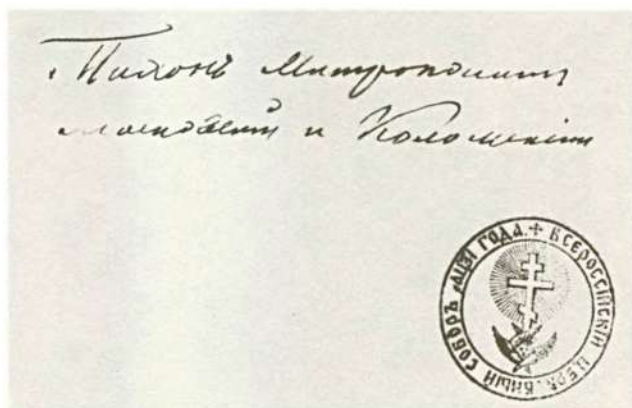 Тихонъ Митрополитъ
Московскій и Коломенскій
ВСЕРОССІЙСКІЙ ЦЕРКОВНЫЙ СОБОРЪ ҂АЦЗІ ГОДА. +